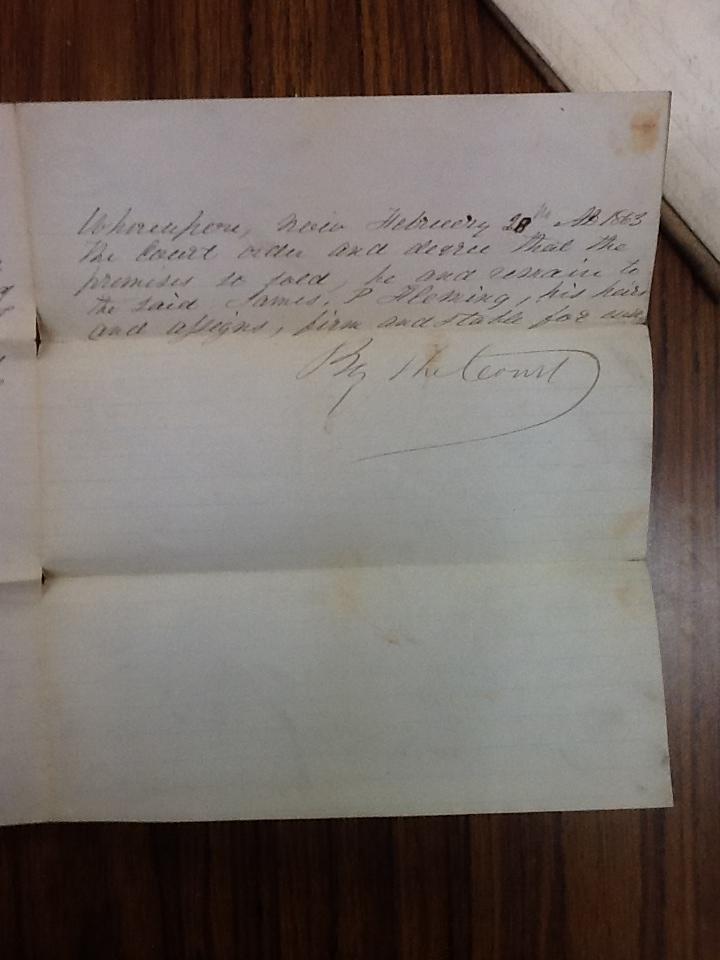 Whereupon, now February 28th AD 1863
The Court order and decree that the
premises so sold, be and remain to
the said James, P Fleming, his heirs
and assigns, firm and stable for ever
By the Court